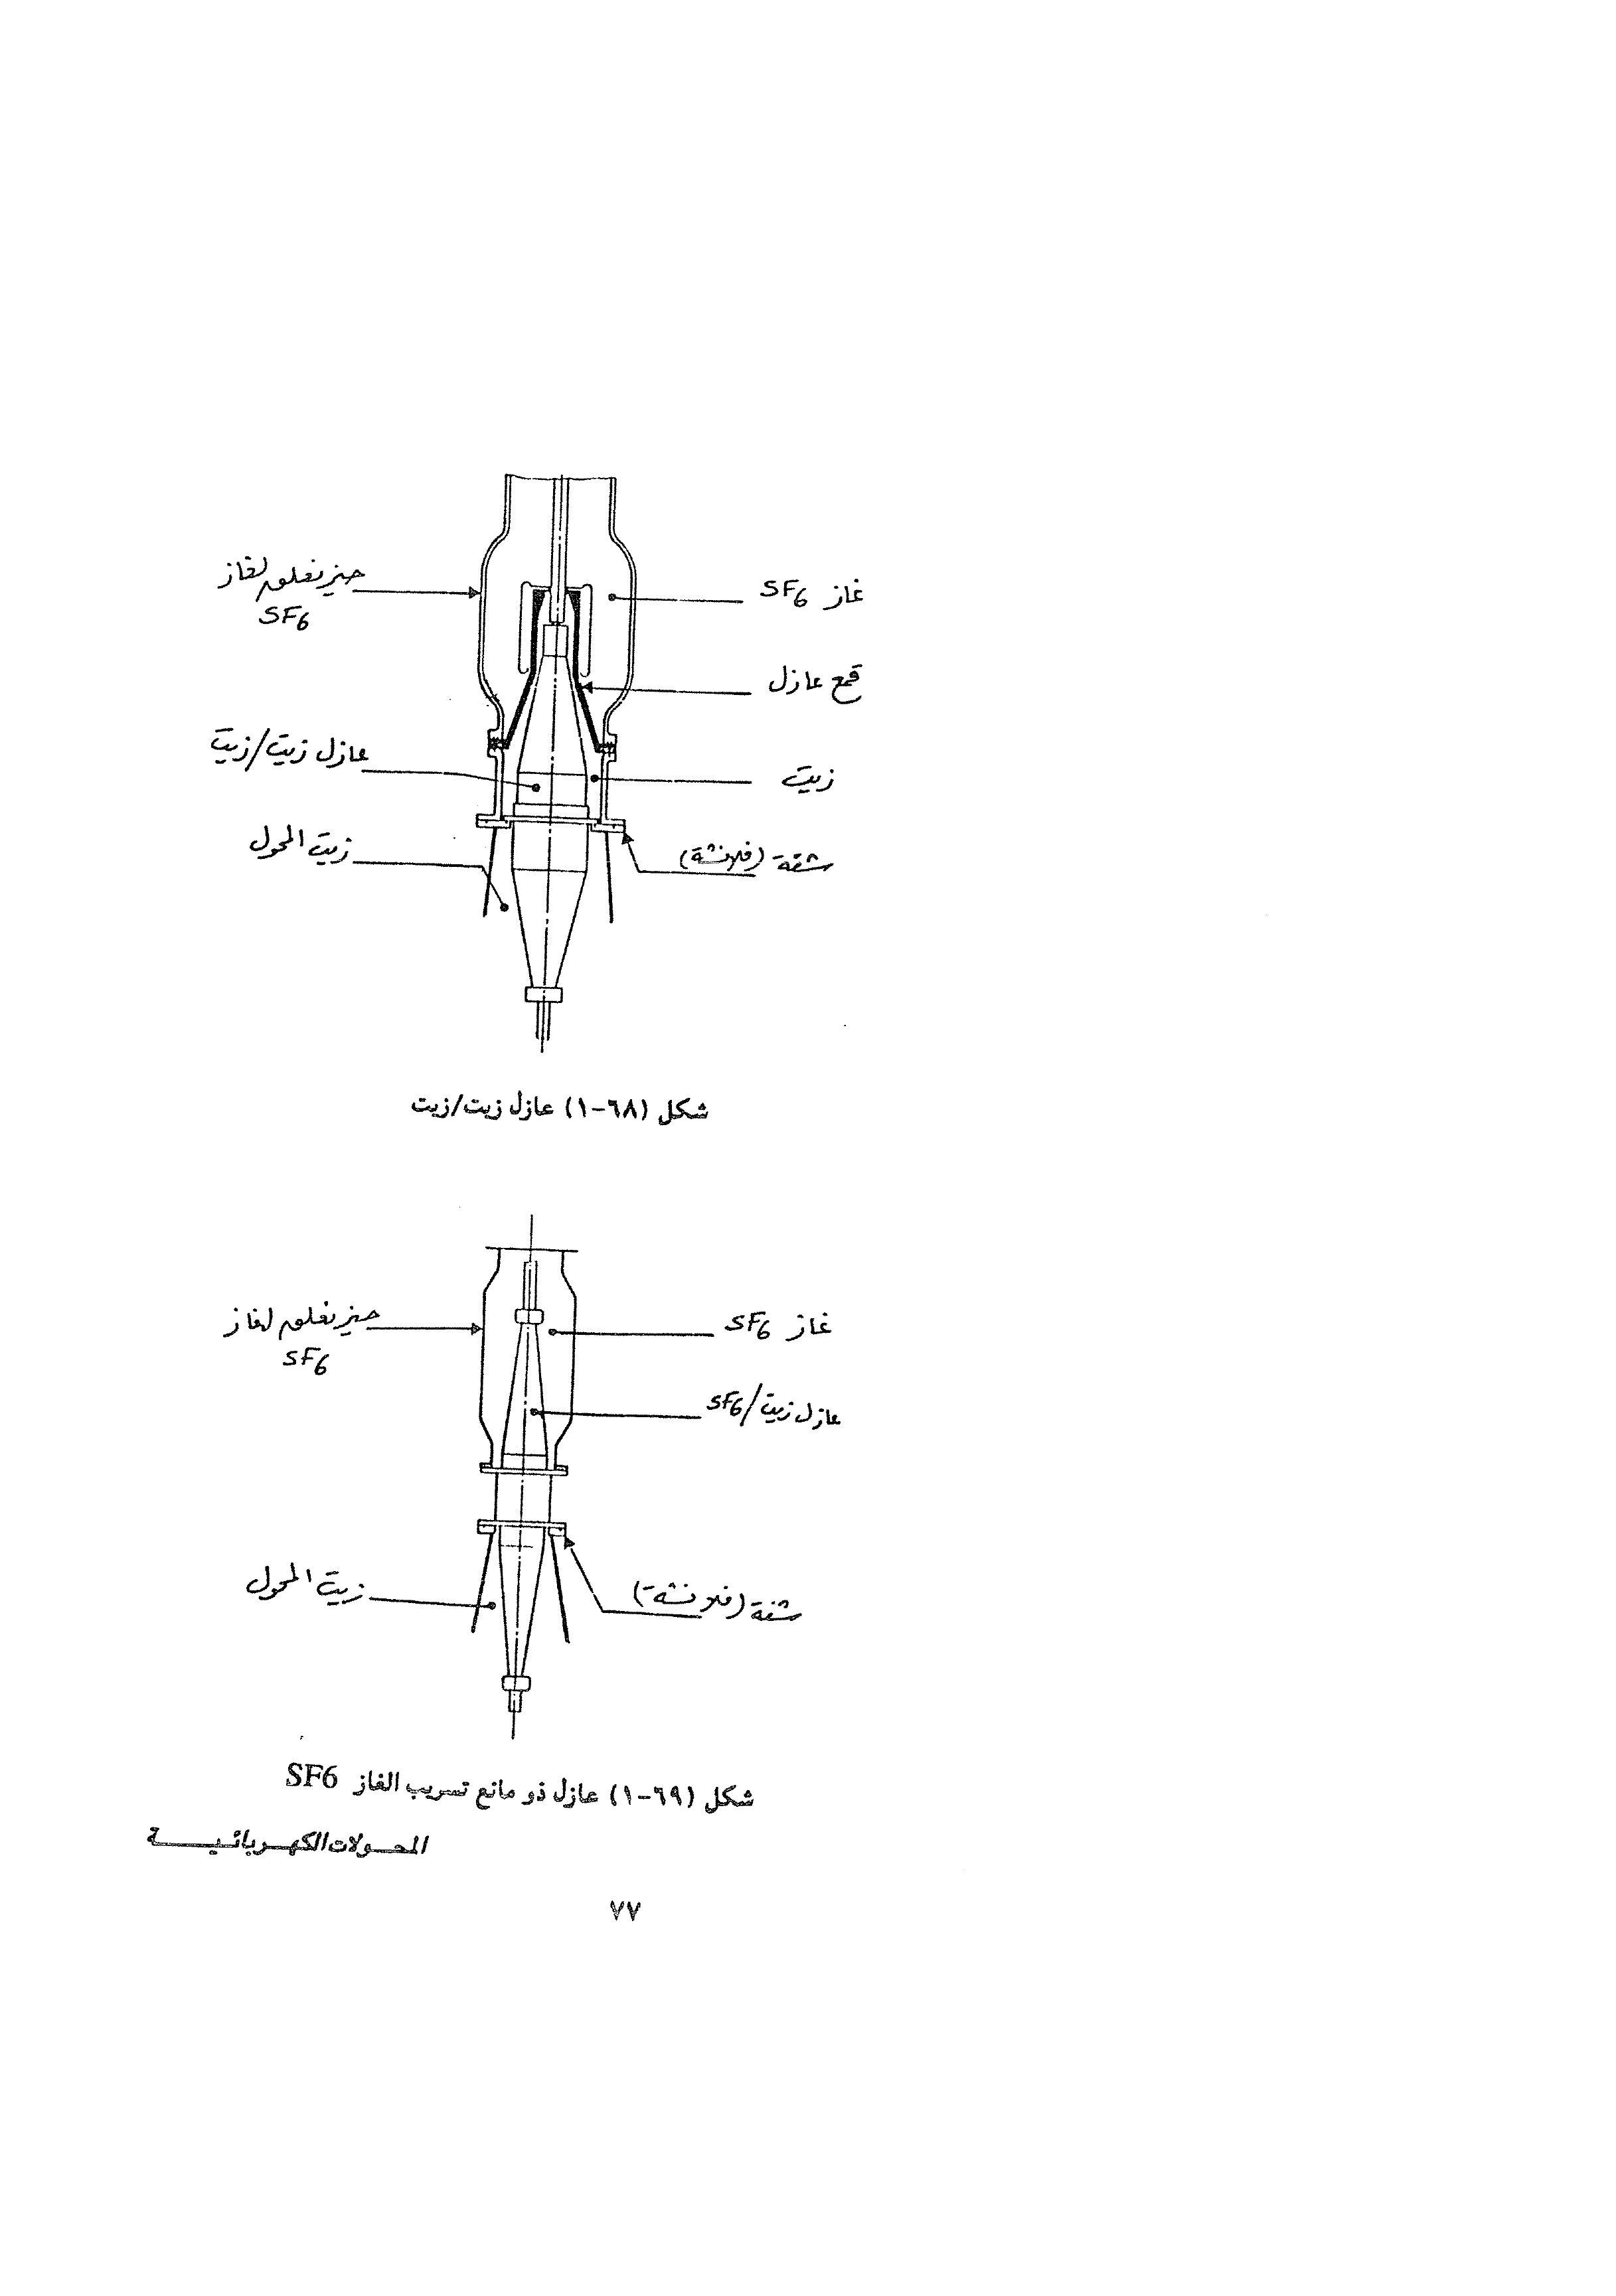 حيز مغلق لغاز
SF6
غاز SF6
قمع عازل
عازل زيت/زيت
زيت
زيت المحول
شفة (فلانشة)
شكل (٦٨-١) عازل زيت/زيت
حيز مغلق لغاز
SF6
غاز SF6
عازل زيت/SF6
زيت المحول
شفة (فلانشة)
شكل (٦٩-١) عازل ذو مانع تسريب الغاز SF6
المحولات الكهربائية
٧٧